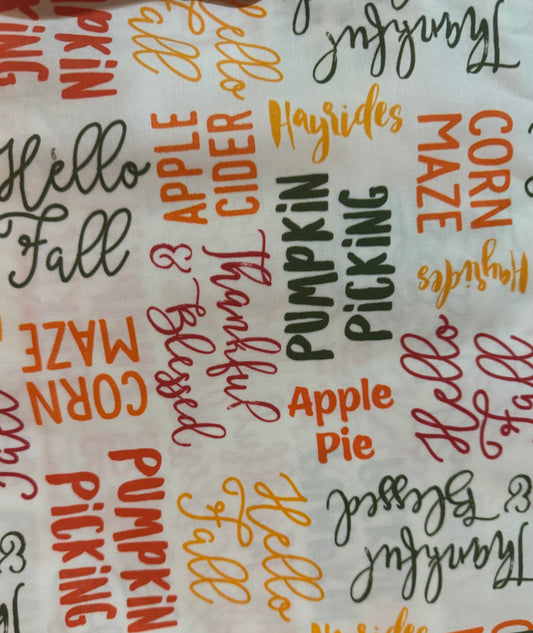 PUMPKiN
PiCKiNG
Hello
Fall
Thankful
APPLE
CIDER
Hayrides
CORN
MAZE
Hello
Fall
PUMPKiN
PiCKiNG
Thankful
& Blessed
Hayrides
CORN
MAZE
Apple
Pie
Hello
Fall
Fall
PUMPKiN
PiCKiNG
Hello
Fall
Thankful
& Blessed
&
Hayrides